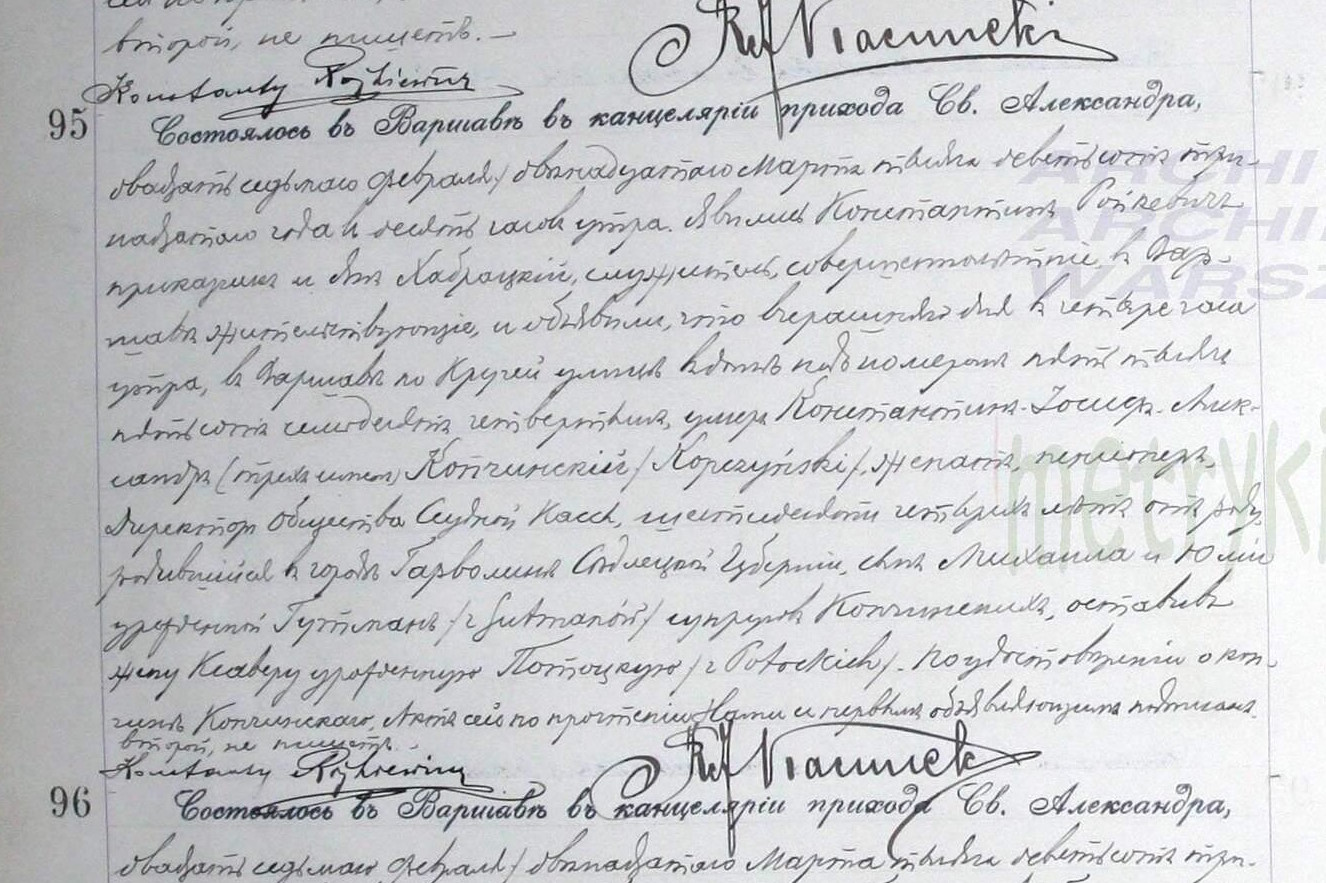 второй, не пишетъ. —
Konstanty Rojkiewicz
95 Состоялось въ Варшавѣ въ канцеляріи прихода Св. Александра,
двадцать седьмаго Февраля / двѣнадцатаго Марта тысяча девятьсотъ три-
надцатаго года въ десять часовъ утра. Явились Константинъ Ройкевичъ
прикащикъ и Янъ служитель, совершеннолѣтніе, въ Вар-
шавѣ жительствующіе, и объявили, что вчерашняго дня въ четыре часа
утра, въ Варшавѣ по Кручей улицѣ въ домѣ подъ номеромъ пять тысячъ
пятьсотъ семьдесятъ четвертымъ, умеръ Константинъ-Іосифъ-Алек-
сандръ (трехъ именъ) Копчинскій / Kopczyński /, женатъ, пенсіонеръ,
Директоръ Общества Ссудной Кассы, шестидесяти четырехъ лѣтъ отъ роду,
родившійся въ городѣ Гарволинѣ Сѣдлецкой Губерніи, сынъ Михаила и Юліи
урожденной Гутманъ / z Gutmanów / супруговъ Копчинскихъ, оставивъ
жену Ксаверу урожденную Потоцкую / z Potockich /. По удостовѣреніи о кон-
чинѣ Копчинскаго, Актъ сей по прочтеніи Нами и первымъ объявляющимъ подписанъ,
второй, не пишетъ. —
Konstanty Rojkiewicz
96 Состоялось въ Варшавѣ въ канцеляріи прихода Св. Александра,
двадцать седьмаго Февраля / двѣнадцатаго Марта тысяча девятьсотъ три-
ARCHI
ARCHI
WARSZ
metryki